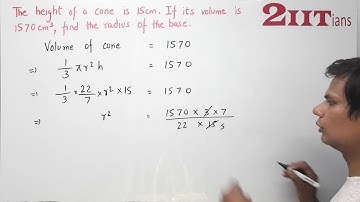 The height of a cone is 15cm. If its volume is
1570cm³, find the radius of the base.
2IITians
Volume of cone = 1570
=> 1/3 πr²h = 1570
=> 1/3 × 22/7 × r² × 15 = 1570
=> r² = 1570 × 3 × 7 / 22 × 15 5